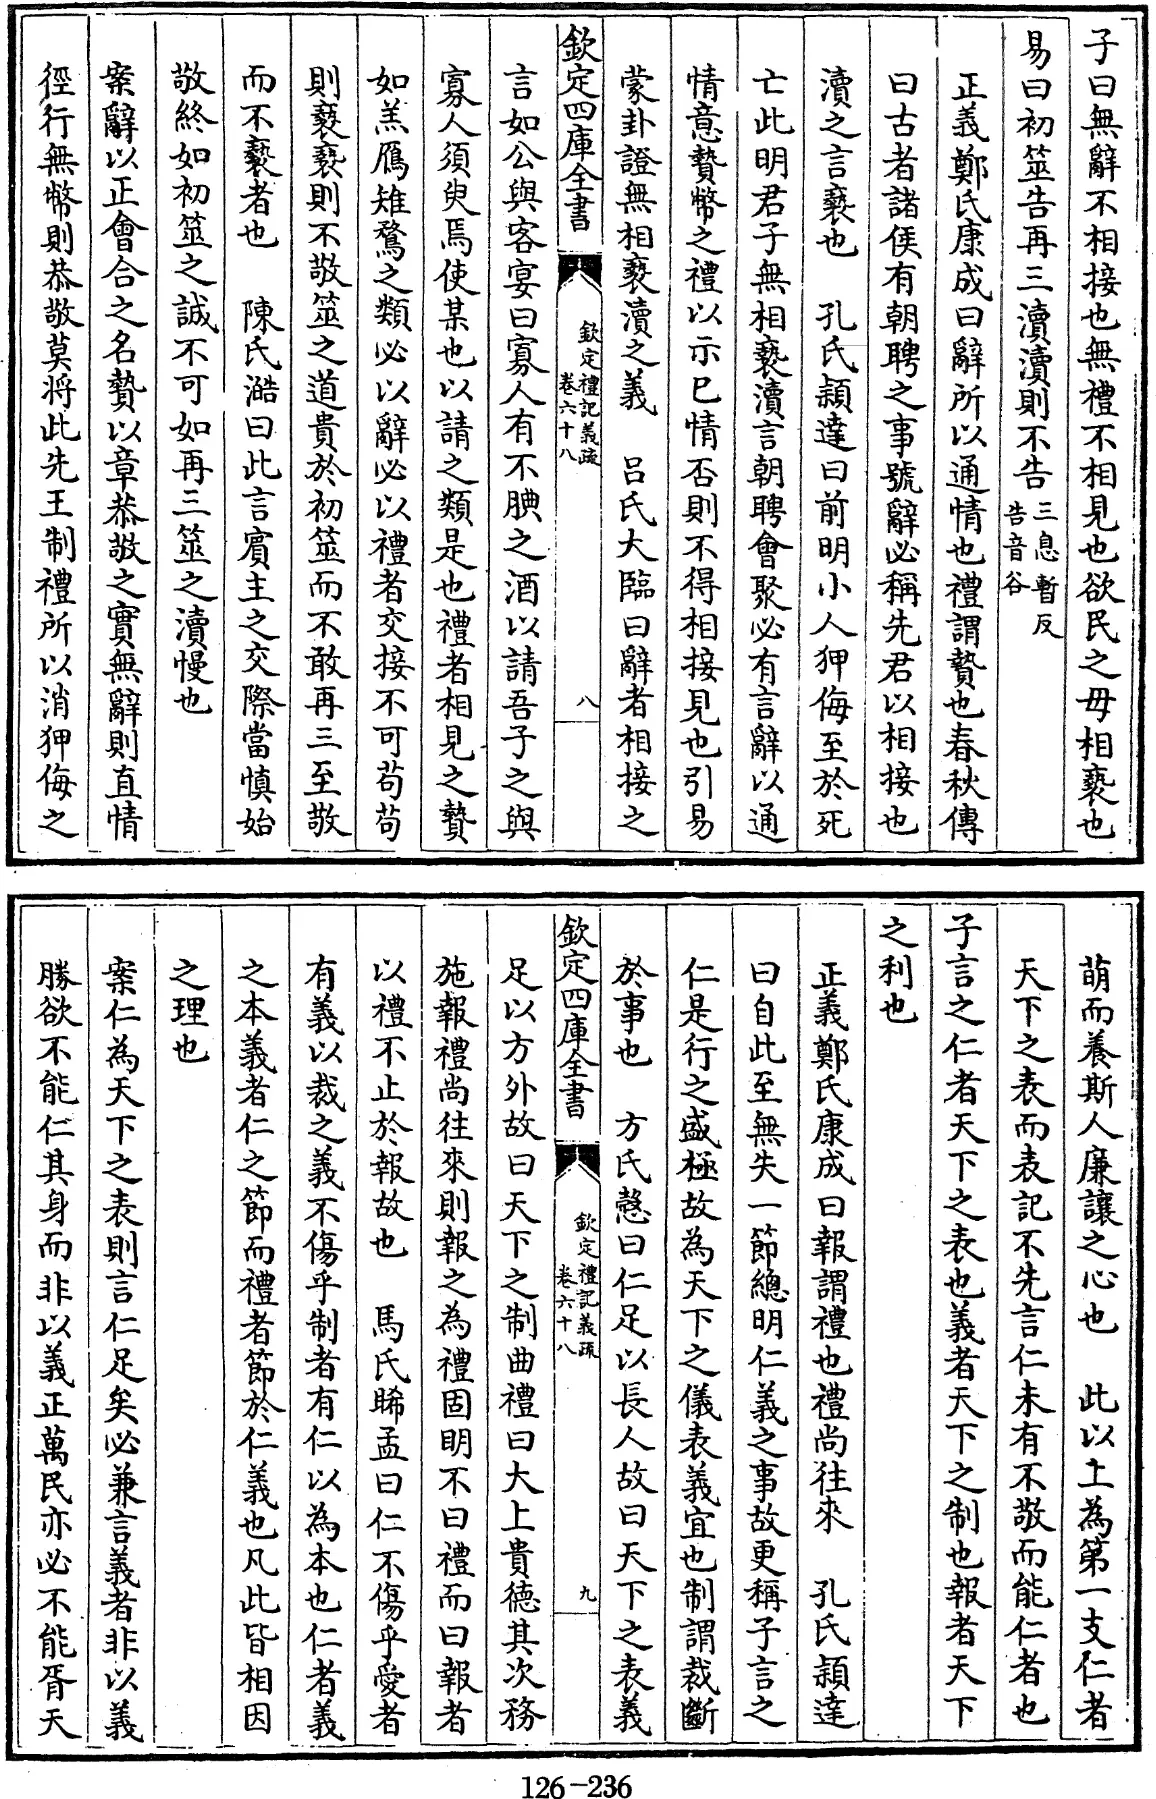 子曰無辭不相接也無禮不相見也欲民之毋相褻也
易曰初筮告再三瀆瀆則不告三息暫反告音谷
正義鄭氏康成曰辭所以通情也禮謂贄也春秋傳
曰古者諸侯有朝聘之事號辭必稱先君以相接也
瀆之言褻也　孔氏穎達曰前明小人狎侮至於死
亡此明君子無相褻瀆言朝聘會聚必有言辭以通
情意贄幣之禮以示已情否則不得相接見也引易
蒙卦證無相褻瀆之義　呂氏大臨曰辭者相接之
欽定四庫全書
欽定禮記義疏
卷六十八
八
言如公與客宴曰寡人有不腆之酒以請吾子之與
寡人須臾焉使某也以請之類是也禮者相見之贄
如羔鴈雉鶩之類必以辭必以禮者交接不可苟苟
則褻褻則不敬筮之道貴於初筮而不敢再三至敬
而不褻者也　陳氏澔曰此言賓主之交際當慎始
敬終如初筮之誠不可如再三筮之瀆慢也
案辭以正會合之名贄以章恭敬之實無辭則直情
徑行無幣則恭敬莫將此先王制禮所以消狎侮之
萌而養斯人廉讓之心也　此以上為第一支仁者
天下之表而表記不先言仁未有不敬而能仁者也
子言之仁者天下之表也義者天下之制也報者天下
之利也
正義鄭氏康成曰報謂禮也禮尚往來　孔氏穎達
曰自此至無失一節總明仁義之事故更稱子言之
仁是行之盛極故為天下之儀表義宜也制謂裁斷
於事也　方氏慤曰仁足以長人故曰天下之表義
欽定四庫全書
欽定禮記義疏
卷六十八
九
足以方外故曰天下之制曲禮曰大上貴德其次務
施報禮尚往來則報之為禮固明不曰禮而曰報者
以禮不止於報故也　馬氏晞孟曰仁不傷乎愛者
有義以裁之義不傷乎制者有仁以為本也仁者義
之本義者仁之節而禮者節於仁義也凡此皆相因
之理也
案仁為天下之表則言仁足矣必兼言義者非以義
勝欲不能仁其身而非以義正萬民亦必不能胥天
126-236